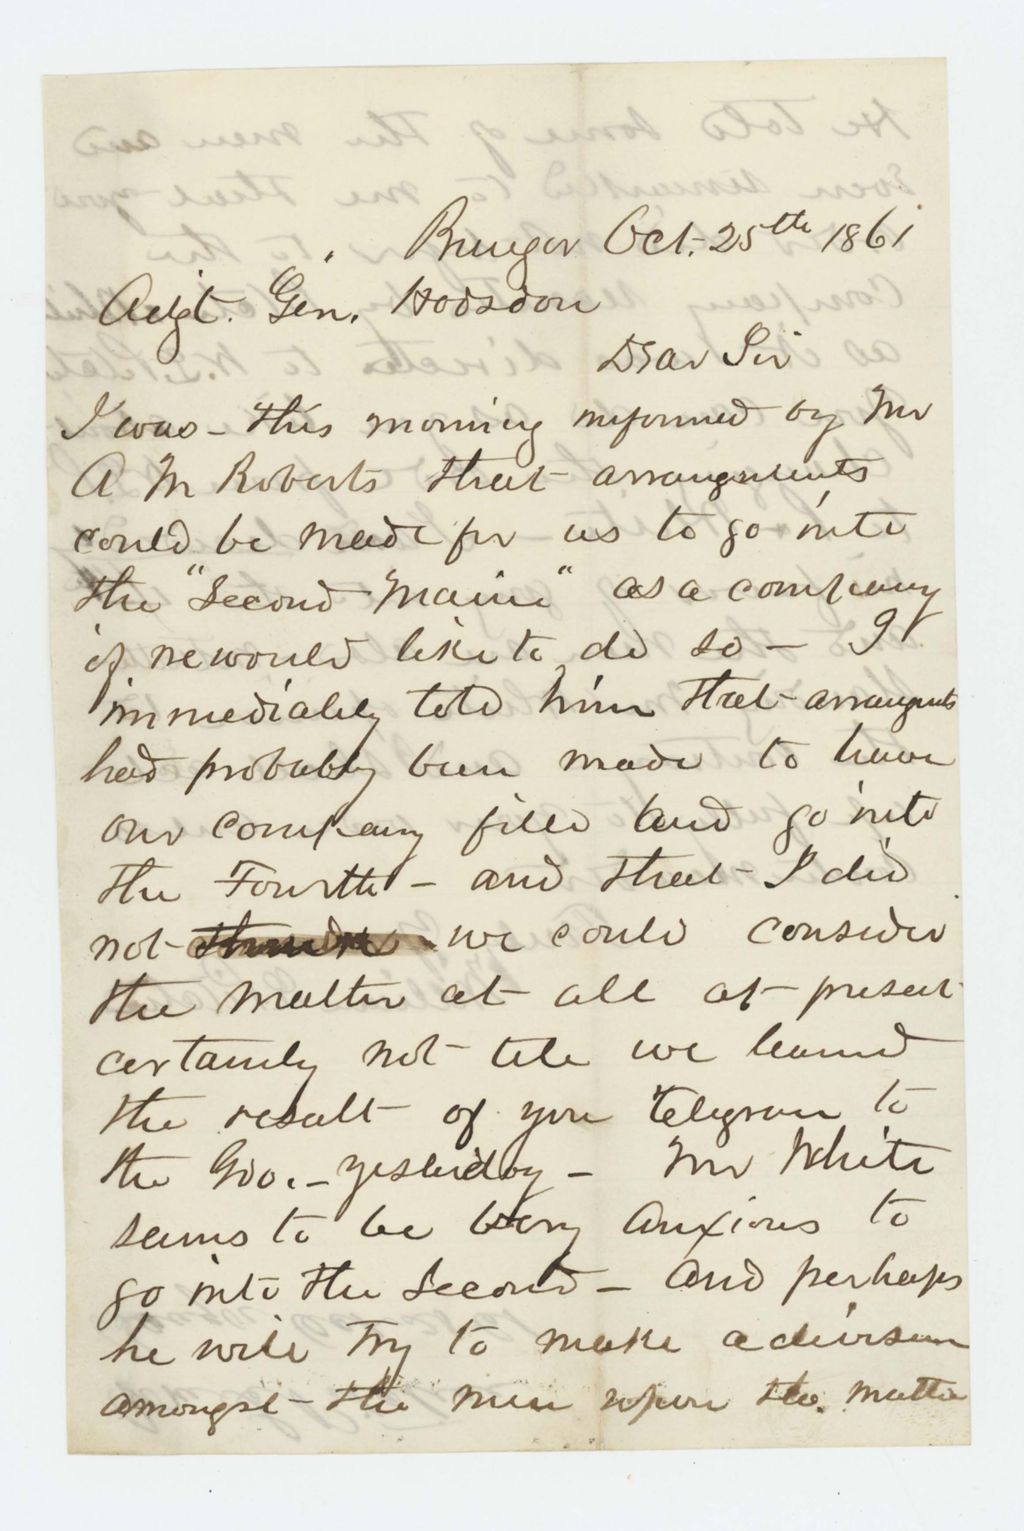 Bangor Oct. 25th 1861
Adgt. Gen. Hodsdon
Dear Sir
I was - this morning informed by Mr
A M Roberts that arrangements
could be made for us to go into
the "Second Maine" as a company
if we would like to do so - I
immediately told him that arrangments
had probably been made to have
our company filled and go into
the Fourth - and that I did
not we could consider
the matter at all at present
certainly not till we learned
the result of your Telegram to
the Gov. - yesterday - Mr White
seems to be very anxious to
go into the Second - and perhaps
he will try to make a division
amongst the men upon the matter